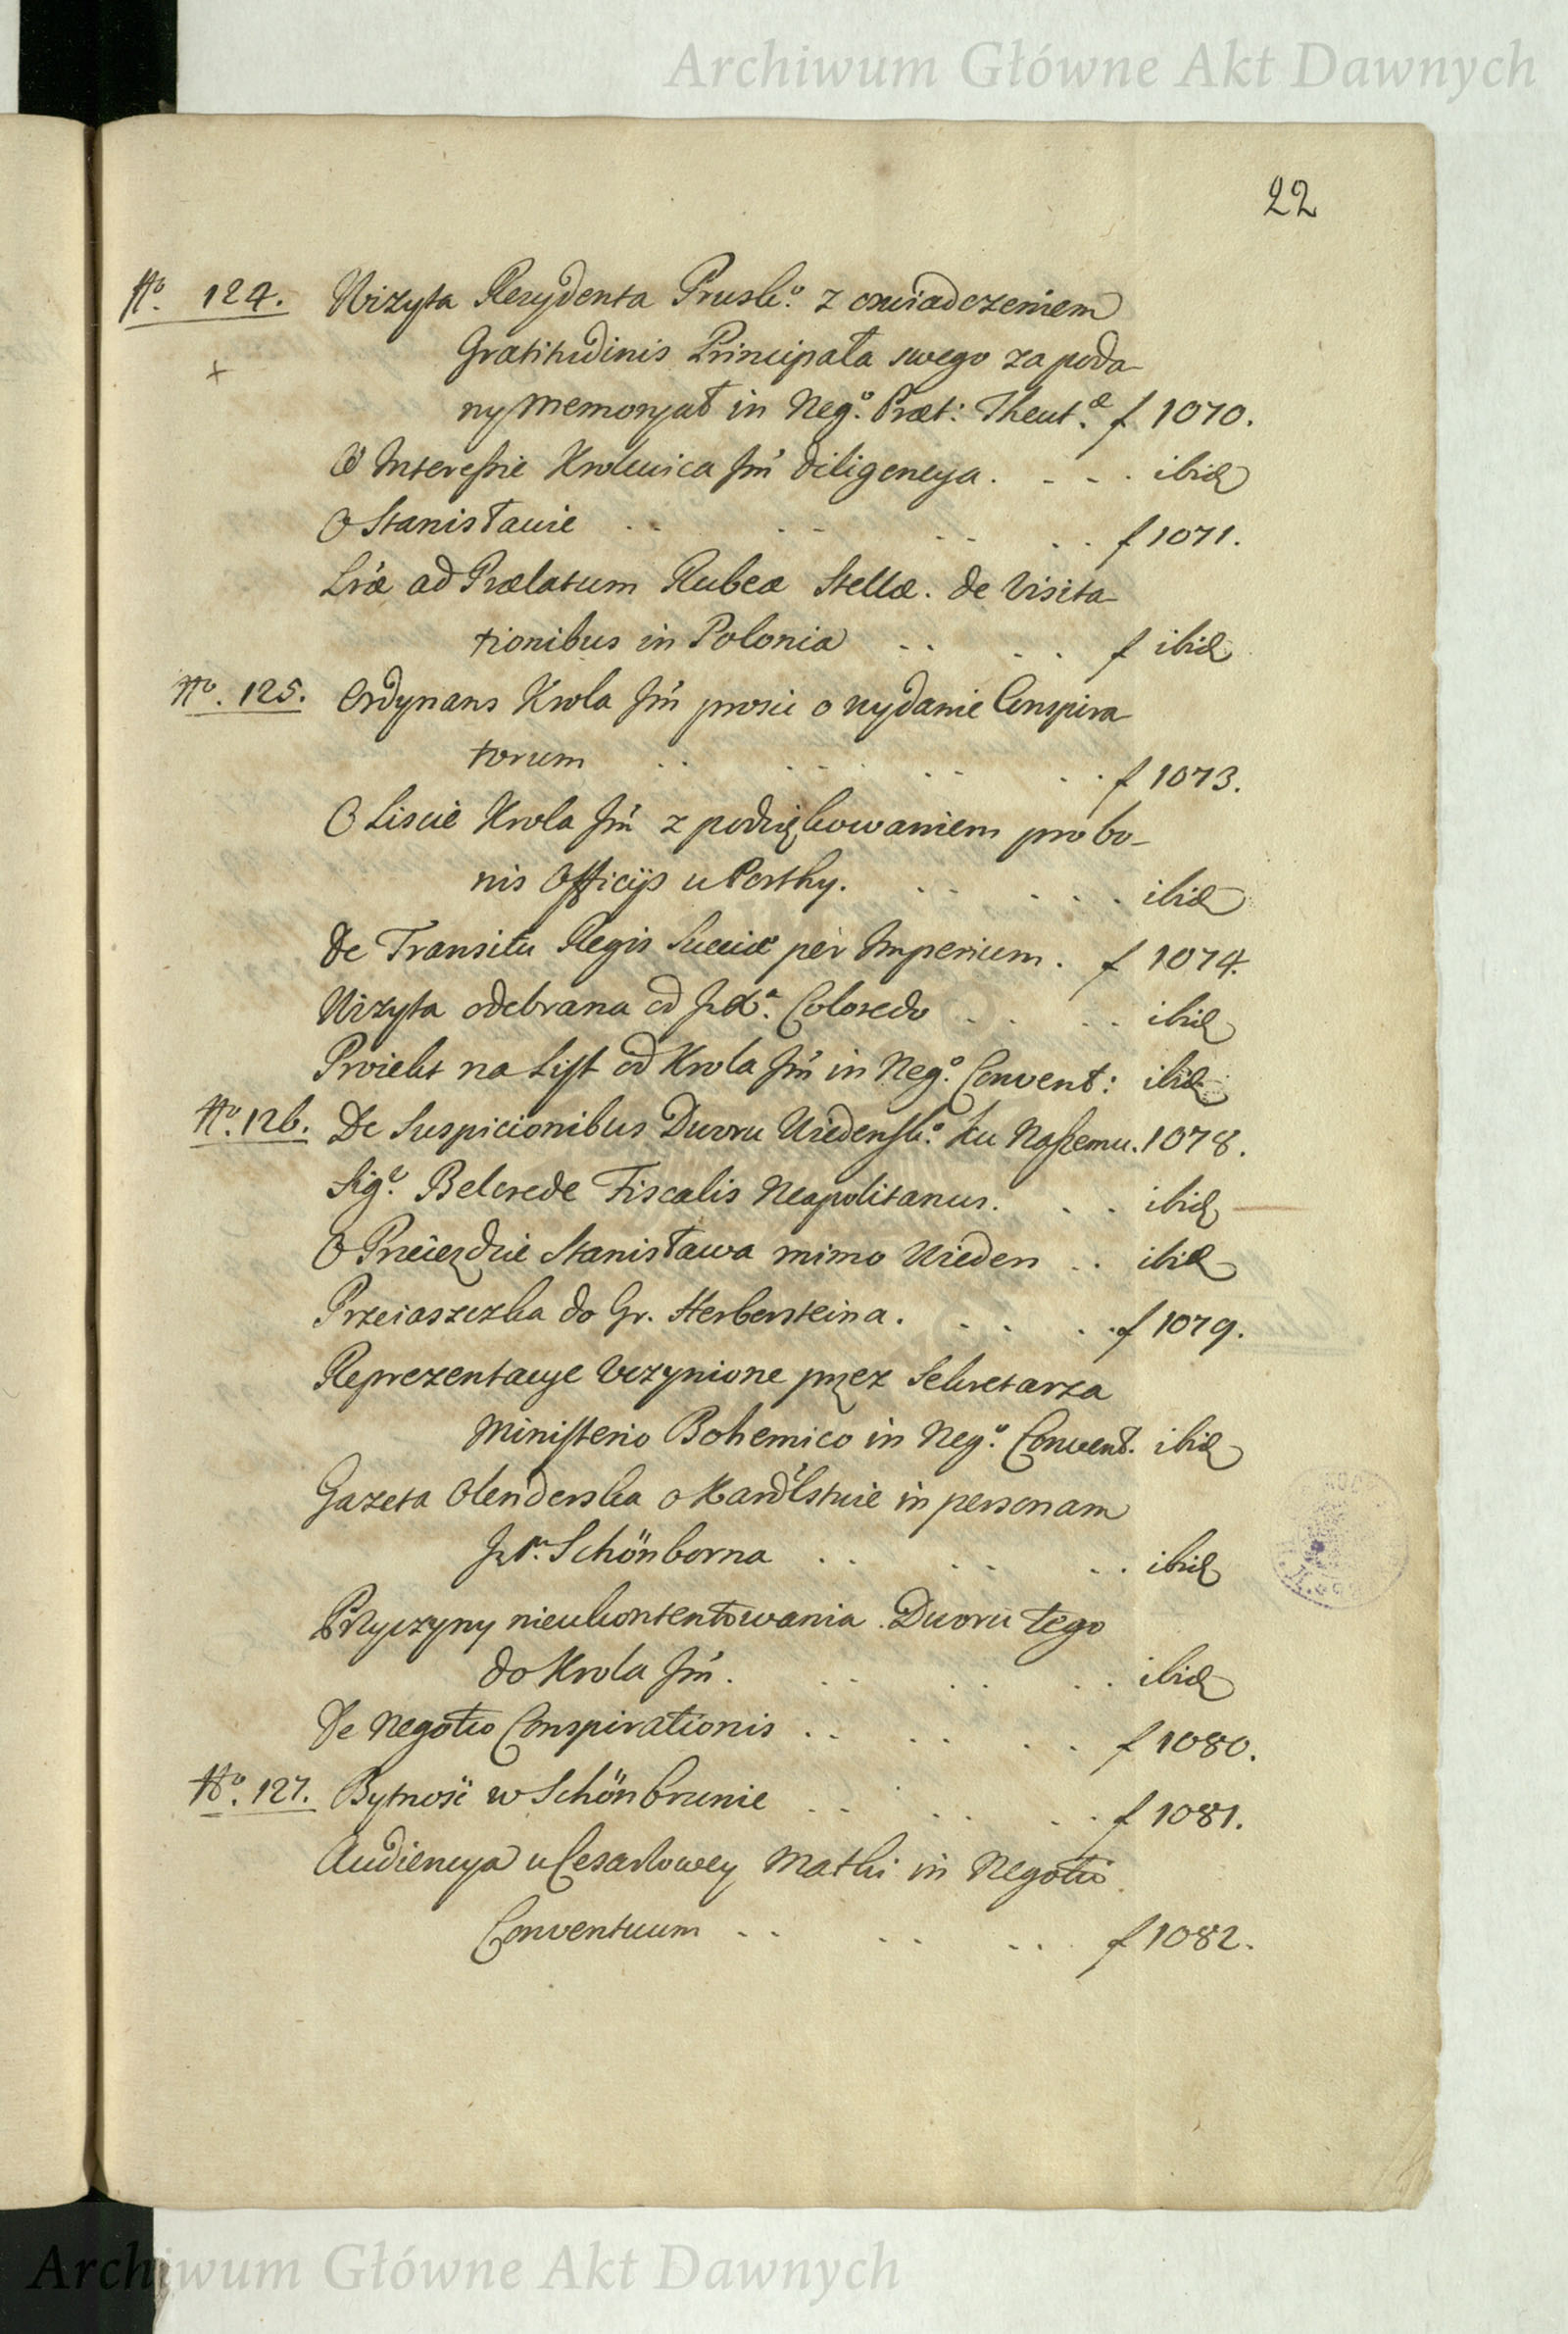 Archiwum Główne Akt Dawnych
22
No. 124. Wizyta Rezydenta Prusk.o z oswiadczeniem
Gratitudinis Principała swego za poda-
ny Memoryał in Neg.o Præt: Theut.æ f 1070.
O Interessie Krolewica Jm̃ diligencya. - - . ibid
O Stanisławie . . . . . . . . f 1071.
Lræ ad Prælatum Rubeæ Stellæ. de Visita-
tionibus in Polonia . . . . f ibid
No. 125. Ordynans Krola Jm̃ prosic o wydanie Conspira-
torum . . . . . . . . f 1073.
O Liscie Krola Jm̃ z podziękowaniem pro bo-
nis Officijs u Porthy. . . . . . ibid
De Transitu Regis Sueciæ per Imperium. f 1074.
Wizyta odebrana od Colloredo . . . . ibid
Proiekt na List od Krola Jm̃ in Neg.o Convent: ibid
No. 126. De Suspicionibus Dworu Wiedensk.o ku Naszemu. 1078.
Sig.r Belcrede Fiscalis Neapolitanus. . . ibid
O Przeiezdzie Stanisława mimo Wieden . . ibid
Przeiaszczka do Gr. Herbersteina. . . . . f 1079.
Reprezentacye Vczynione przez Sekretarza
Ministerio Bohemico in Neg.o Convent. ibid
Gazeta Olenderska o Kardłstwie in personam
Schönborna . . . . . . ibid
Przyczyny nieukontentowania Dworu tego
do Krola Jm̃. . . . . . . ibid
De Negotio Conspirationis . . . . . . f 1080.
No. 127. Bytnosć w Schönbrunie . . . . . . f 1081.
Audiencya u Cesarzowey Matki in Negotio
Conventuum . . . . . . f 1082.
Archiwum Główne Akt Dawnych